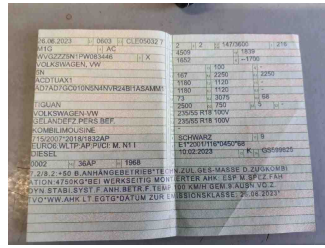 26.06.2023 0603 CLE05032 7
M1G AC
WVGZZZ5N1PW083446 X
VOLKSWAGEN, VW
5N
ACDTUAX1
AD7AD7GC010N5N4NVR24BI1ASAMM1
TIGUAN
VOLKSWAGEN-VW
GELÄNDEFZ.PERS.BEF.
KOMBILIMOUSINE
715/2007*2018/1832AP
EURO6 WLTP;AP;PI/CI: M, N1 I
DIESEL
0002 36AP 1968
2 2 147/3600 216
4509 1839
1652 -1700
100
167 2250 2250
1180 1120
1180 1120
73 3075 68
2500 750 5
235/55 R18 100V
235/55 R18 100V
SCHWARZ 9
E1*2001/116*0450*68
10.02.2023 K
7.2/8.2:+50 B.ANHÄNGEBETRIEB*TECHN.ZUL.GES-MASSE D.ZUGKOMBI
ATION:4750KG*BEI WERKSEITIG MONTIERTER AHK. ESP M.SPEZ.FÄH
DYN.STABI.SYST.F.ANH.BETR.F.TEMP 100 KM/H GEM.9.AUSN.VO.Z.
TVO*WW.AHK LT.EGTG*DATUM ZUR EMISSIONSKLASSE: 26.06.2023*